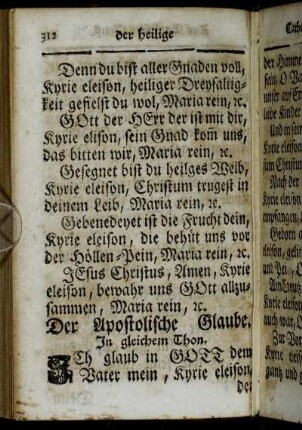 312 der heilige
Denn du bist aller Gnaden voll,
Kyrie eleison, heiliger Dreyfaltig-
keit gefielst du wol, Maria rein, ꝛc.
GOtt der HErr der ist mit dir,
Kyrie elison, sein Gnad kom̃ uns,
das bitten wir, Maria rein, ꝛc.
Gesegnet bist du heilges Weib,
Kyrie eleison, Christum trugest in
deinem Leib, Maria rein, ꝛc.
Gebenedeyet ist die Frucht dein,
Kyrie eleison, die behüt uns vor
der Höllen-Pein, Maria rein, ꝛc.
JEsus Christus, Amen, Kyrie
eleison, bewahr uns GOtt allzu-
sammen, Maria rein, ꝛc.
Der Apostolische Glaube.
In gleichem Thon.
ICh glaub in GOTT dem
Vater mein, Kyrie eleison,
der